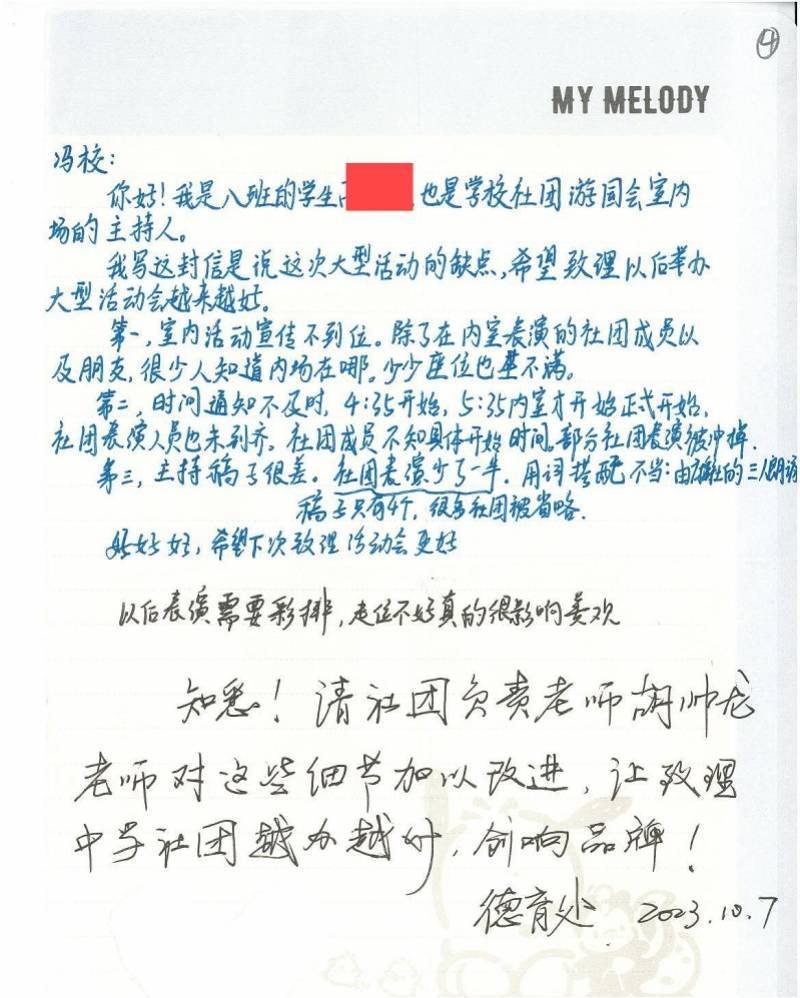 ④
MY MELODY
冯校:
你好!我是八班的学生 也是学校社团游园会室内
场的主持人。
我写这封信是说这次大型活动的缺点,希望致理以后举办
大型活动会越来越好。
第一,室内活动宣传不到位。除了在内室表演的社团成员以
及朋友,很少人知道内场在哪。少少座位也坐不满。
第二,时间通知不及时,4:35开始,5:35内室才开始正式开始,
社团表演人员也未到齐。社团成员不知具体开始时间。部分社团表演被冲掉.
第三,主持稿子很差。社团表演少了一半。用词搭配不当:由 社的三人朗诵
稿子只有4个,很多社团被省略.
好好好,希望下次致理活动会更好
以后表演需要彩排,走位不好真的很影响美观
知悉!请社团负责老师胡帅龙
老师对这些细节加以改进,让致理
中学社团越办越好,创响品牌!
德育处 2023.10.7